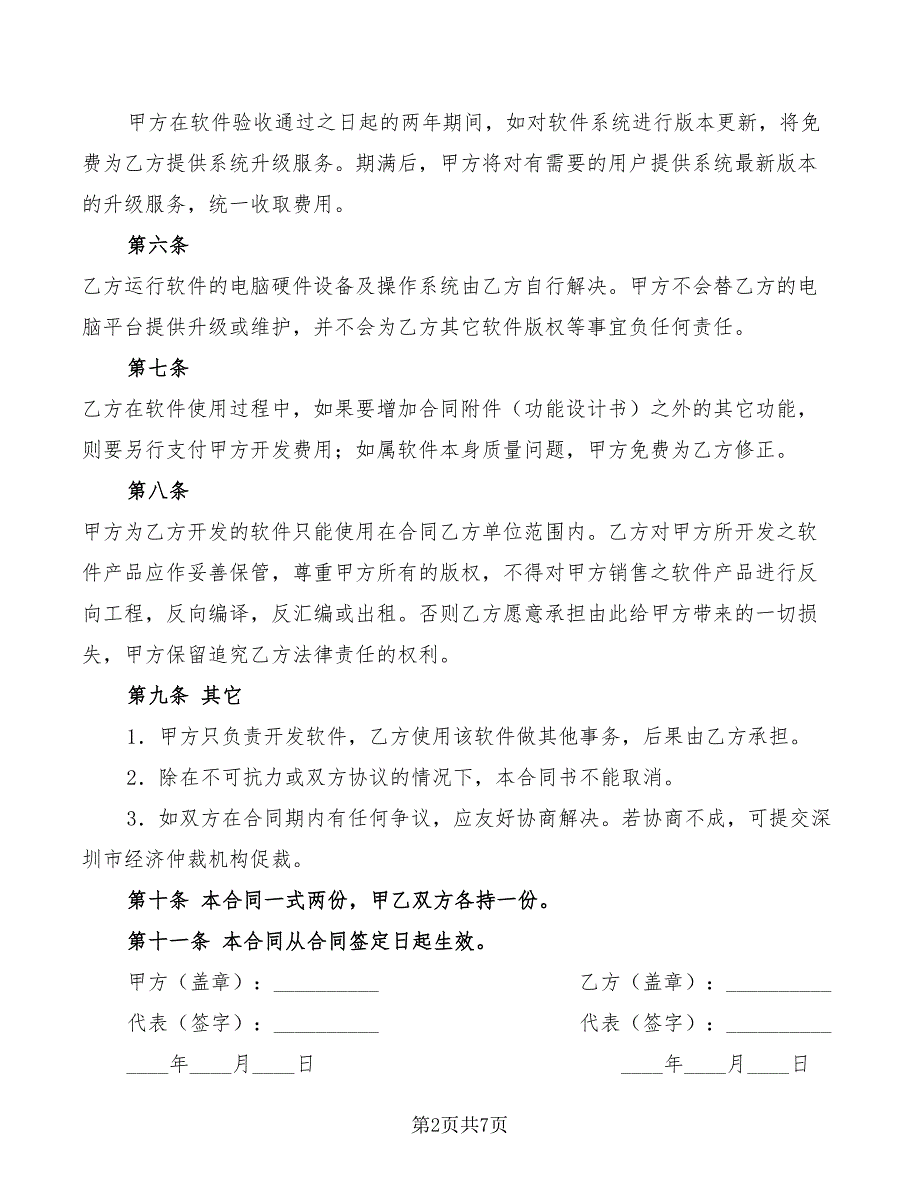 甲方在软件验收通过之日起的两年期间，如对软件系统进行版本更新，将免
费为乙方提供系统升级服务。期满后，甲方将对有需要的用户提供系统最新版本
的升级服务，统一收取费用。
第六条
乙方运行软件的电脑硬件设备及操作系统由乙方自行解决。甲方不会替乙方的电
脑平台提供升级或维护，并不会为乙方其它软件版权等事宜负任何责任。
第七条
乙方在软件使用过程中，如果要增加合同附件（功能设计书）之外的其它功能，
则要另行支付甲方开发费用；如属软件本身质量问题，甲方免费为乙方修正。
第八条
甲方为乙方开发的软件只能使用在合同乙方单位范围内。乙方对甲方所开发之软
件产品应作妥善保管，尊重甲方所有的版权，不得对甲方销售之软件产品进行反
向工程，反向编译，反汇编或出租。否则乙方愿意承担由此给甲方带来的一切损
失，甲方保留追究乙方法律责任的权利。
第九条 其它
1．甲方只负责开发软件，乙方使用该软件做其他事务，后果由乙方承担。
2．除在不可抗力或双方协议的情况下，本合同书不能取消。
3．如双方在合同期内有任何争议，应友好协商解决。若协商不成，可提交深
圳市经济仲裁机构促裁。
第十条 本合同一式两份，甲乙双方各持一份。
第十一条 本合同从合同签定日起生效。
甲方（盖章）：__________ 乙方（盖章）：__________
代表（签字）：__________ 代表（签字）：__________
____年____月____日 ____年____月____日
第2页共7页